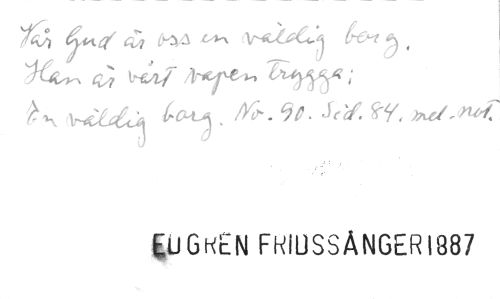 Vår Gud är oss en väldig borg.
Han är vårt vapen trygga;
En väldig borg. No. 90. Sid. 84. mel. not.
EUGRÉN FRIDSSÅNGER 1887